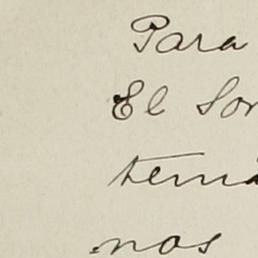 Para
El Son
terna
nos